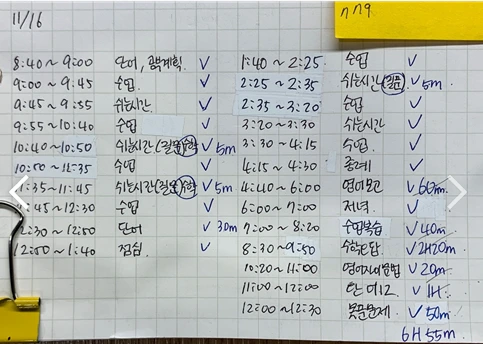 11/16
8:40 ~ 9:00 단어, 공부계획 ✓
9:00 ~ 9:45 수업 ✓
9:45 ~ 9:55 쉬는시간 ✓
9:55 ~ 10:40 수업 ✓
10:40 ~ 10:50 쉬는시간 (질문) 수학 ✓ 5m
10:50 ~ 11:35 수업 ✓
:35 ~ 11:45 쉬는시간 (질문) 수학 ✓ 5m
:45 ~ 12:30 수업 ✓
2:30 ~ 12:50 단어 ✓ 30m
12:50 ~ 1:40 점심 ✓
1:40 ~ 2:25 수업 ✓
2:25 ~ 2:35 쉬는시간 (질문) ✓ 5m
2:35 ~ 3:20 수업 ✓
3:20 ~ 3:30 쉬는시간 ✓
3:30 ~ 4:15 수업 ✓
4:15 ~ 4:30 종례 ✓
4:40 ~ 6:00 영어모고 ✓ 60m
6:00 ~ 7:00 저녁 ✓
7:00 ~ 8:20 수업복습 ✓ 40m
8:30 ~ 9:50 수학오답 ✓ 2H20m
10:20 ~ 11:00 ✓ 20m
11:00 ~ 12:00 단어 ✓ 1H
12:00 ~ 12:30 못푼문제 ✓ 50m
6H 55m